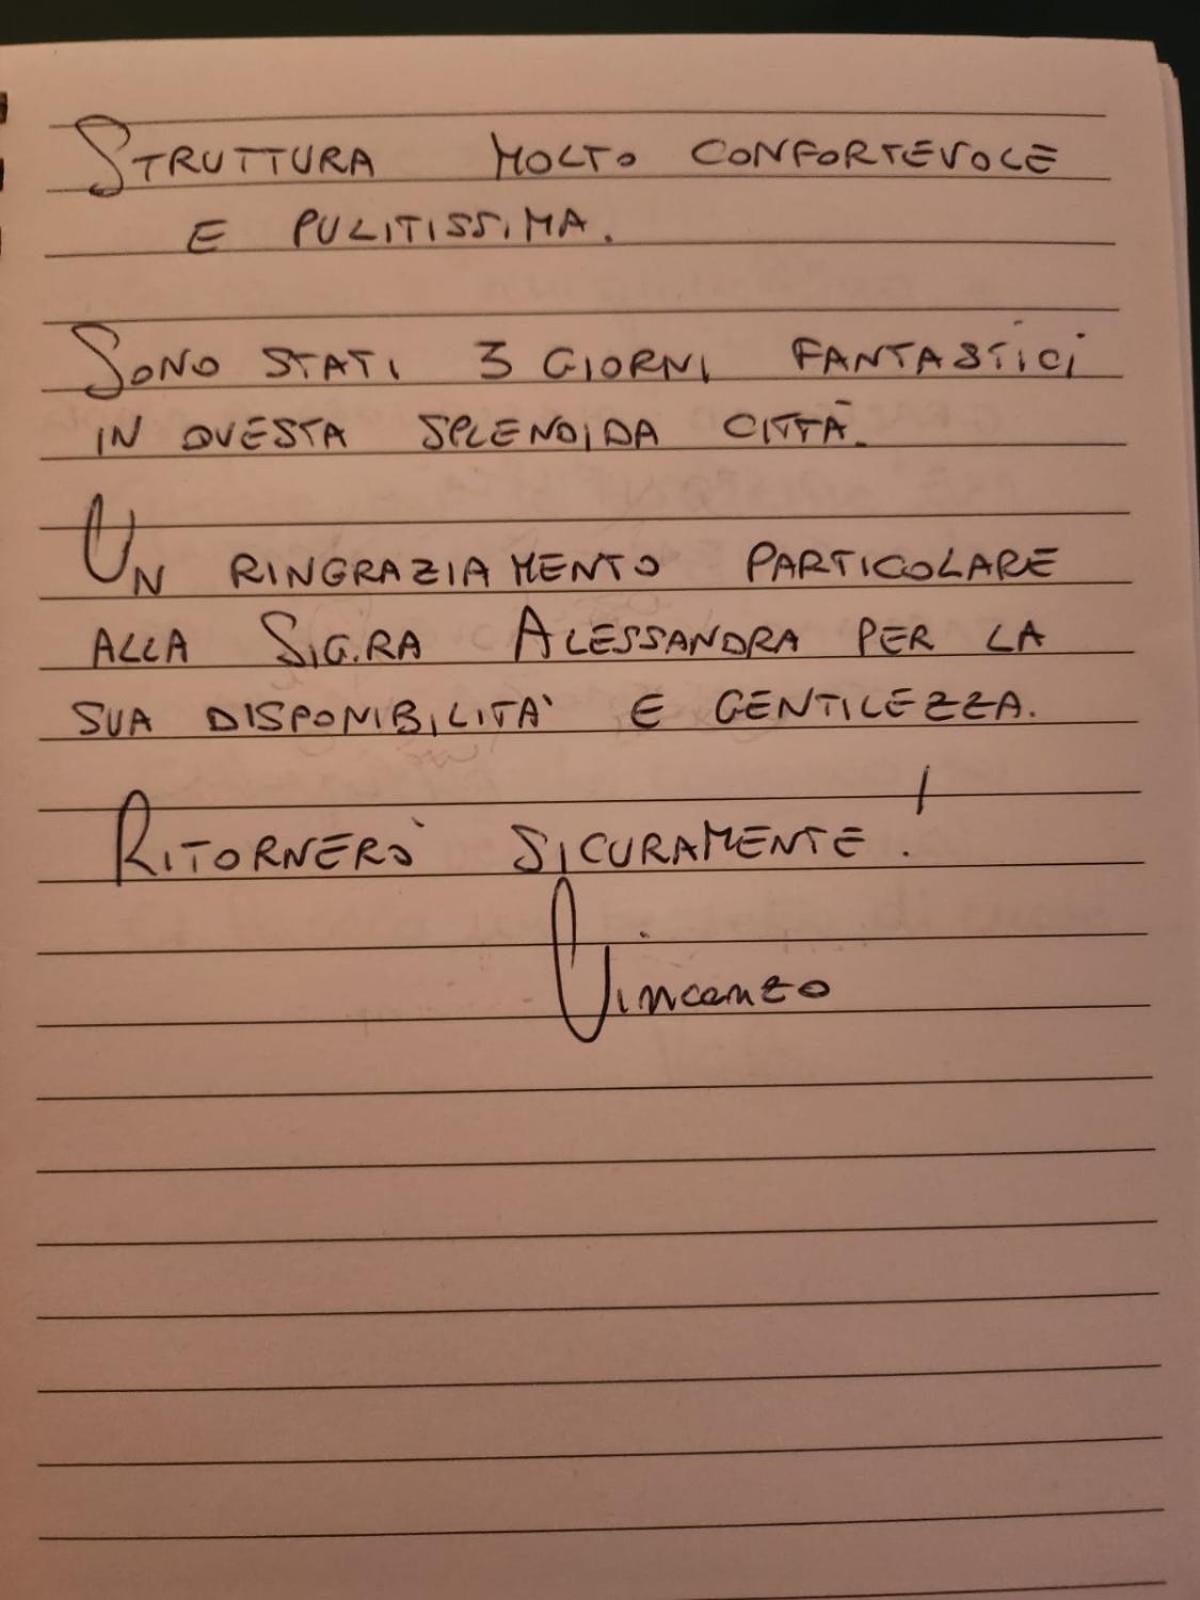 STRUTTURA MOLTO CONFORTEVOLE
E PULITISSIMA.
SONO STATI 3 GIORNI FANTASTICI
IN QUESTA SPLENDIDA CITTÀ.
UN RINGRAZIAMENTO PARTICOLARE
ALLA SIG.RA ALESSANDRA PER LA
SUA DISPONIBILITA' E GENTILEZZA.
RITORNERO' SICURAMENTE!
Vincenzo